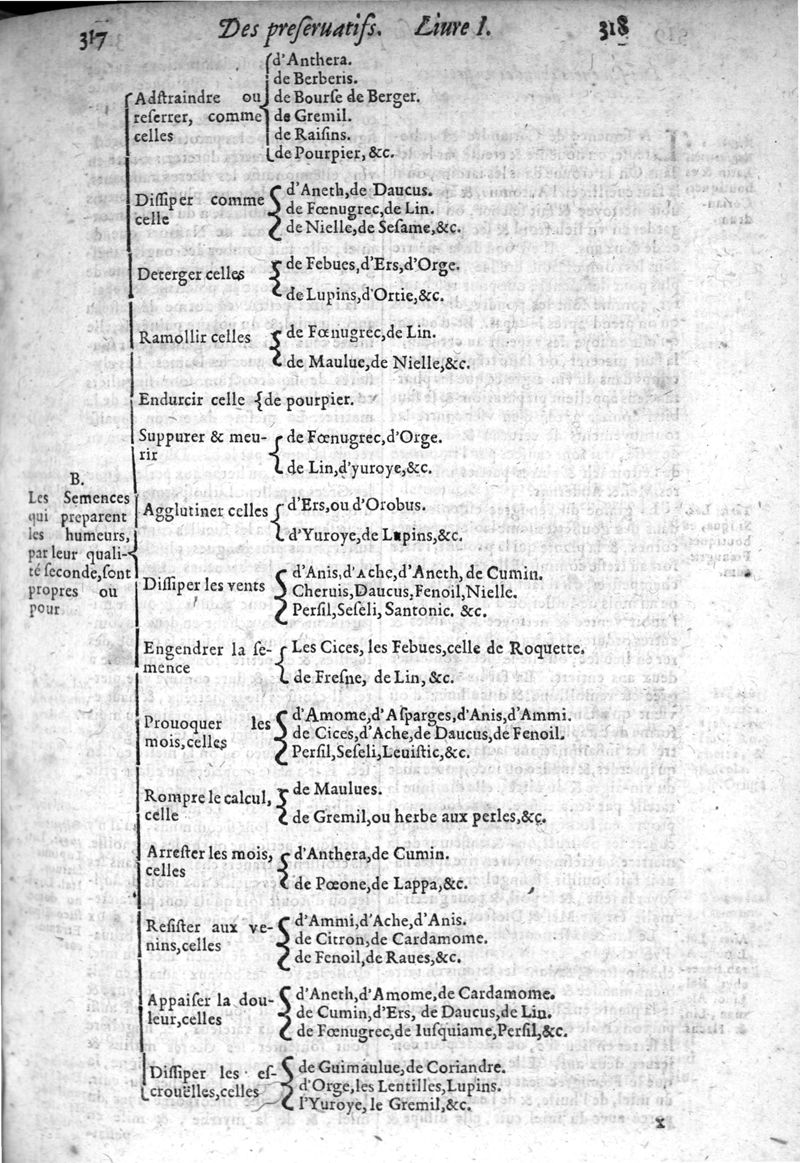 317 Des preſeruatifs. Liure I. 318
B.
Les Semences
qui preparent
les humeurs,
par leur quali-
té ſeconde, ſont
propres ou
pour
Adſtraindre ou
reſerrer, comme
celles
d'Anthera.
de Berberis.
de Bourſe de Berger.
de Gremil.
de Raiſins.
de Pourpier, &c.
Diſſiper comme
celle
d'Aneth, de Daucus.
de Fœnugrec, de Lin.
de Nielle, de Seſame, &c.
Deterger celles
de Febues, d'Ers, d'Orge.
de Lupins, d'Ortie, &c.
Ramollir celles
de Fœnugrec, de Lin.
de Maulue, de Nielle, &c.
Endurcir celle {de pourpier.
Suppurer & meu-
rir
de Fœnugrec, d'Orge.
de Lin, d'yuroye, &c.
Agglutiner celles
d'Ers, ou d'Orobus.
d'Yuroye, de Lupins, &c.
Diſſiper les vents
d'Anis, d'Ache, d'Aneth, de Cumin.
Cheruis, Daucus, Fenoil, Nielle.
Perſil, Seſeli, Santonic. &c.
Engendrer la ſe-
mence
Les Cices, les Febues, celle de Roquette.
de Freſne, de Lin, &c.
Prouoquer les
mois, celles
d'Amome, d'Aſparges, d'Anis, d'Ammi.
de Cices, d'Ache, de Daucus, de Fenoil.
Perſil, Seſeli, Leuiſtic, &c.
Rompre le calcul,
celle
de Maulues.
de Gremil, ou herbe aux perles, &c.
Arreſter les mois,
celles
d'Anthera, de Cumin.
de Pœone, de Lappa, &c.
Reſiſter aux ve-
nins, celles
d'Ammi, d'Ache, d'Anis.
de Citron, de Cardamome.
de Fenoil, de Raues, &c.
Appaiſer la dou-
leur, celles
d'Aneth, d'Amome, de Cardamome.
de Cumin, d'Ers, de Daucus, de Lin.
de Fœnugrec, de Iuſquiame, Perſil, &c.
Diſſiper les eſ-
crouëlles, celles
de Guimaulue, de Coriandre.
d'Orge, les Lentilles, Lupins.
l'Yuroye, le Gremil, &c.
x